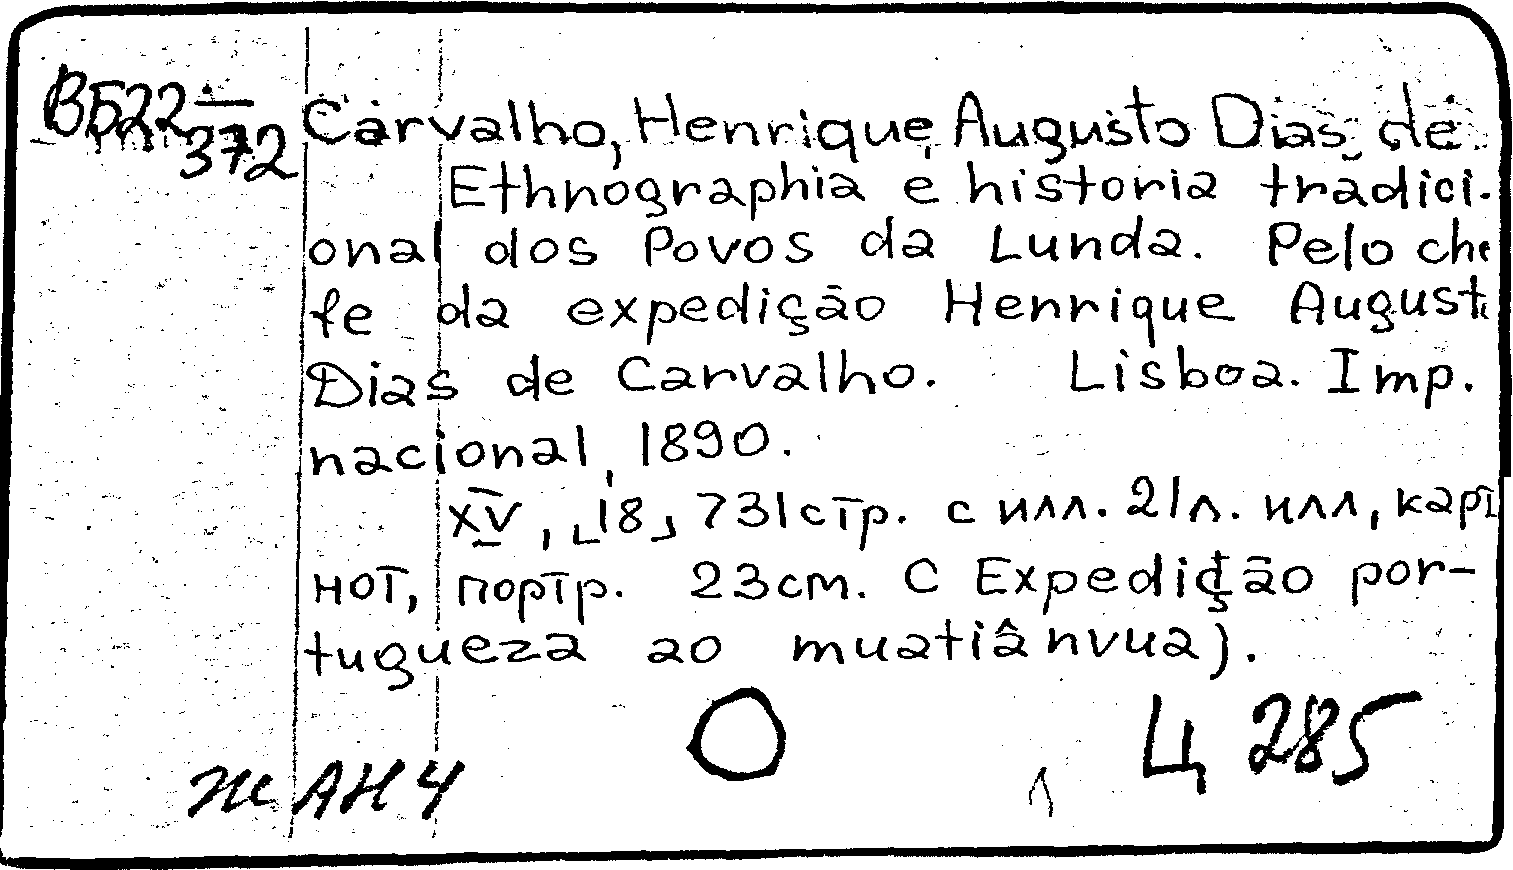 ВБ22 — 372 Carvalho, Henrique Augusto Dias de
Ethnographia e historia tradici-
onal dos Povos da Lunda. Pelo che
fe da expedição Henrique August
Dias de Carvalho. Lisboa. Imp.
nacional, 1890.
XV, [18] 731 стр. с илл. 21 л. илл, карт
нот, портр. 23 см. (Expedição por-
tugueza ao muatiânvua).
Ц 285
ж АН 4